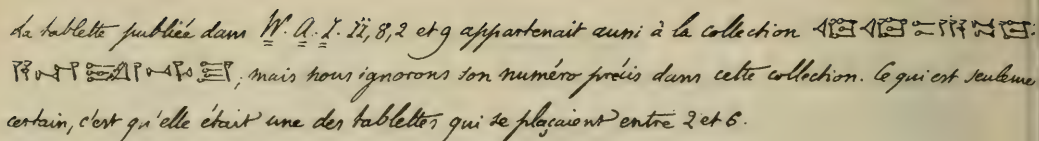 La tablette publiée dans W. A. I. II, 8, 2 et 9 appartenait aussi à la collection
mais nous ignorons son numéro précis dans cette collection. Ce qui est seuleme
certain, c'est qu'elle était une des tablettes qui se plaçaient entre 2 et 6.